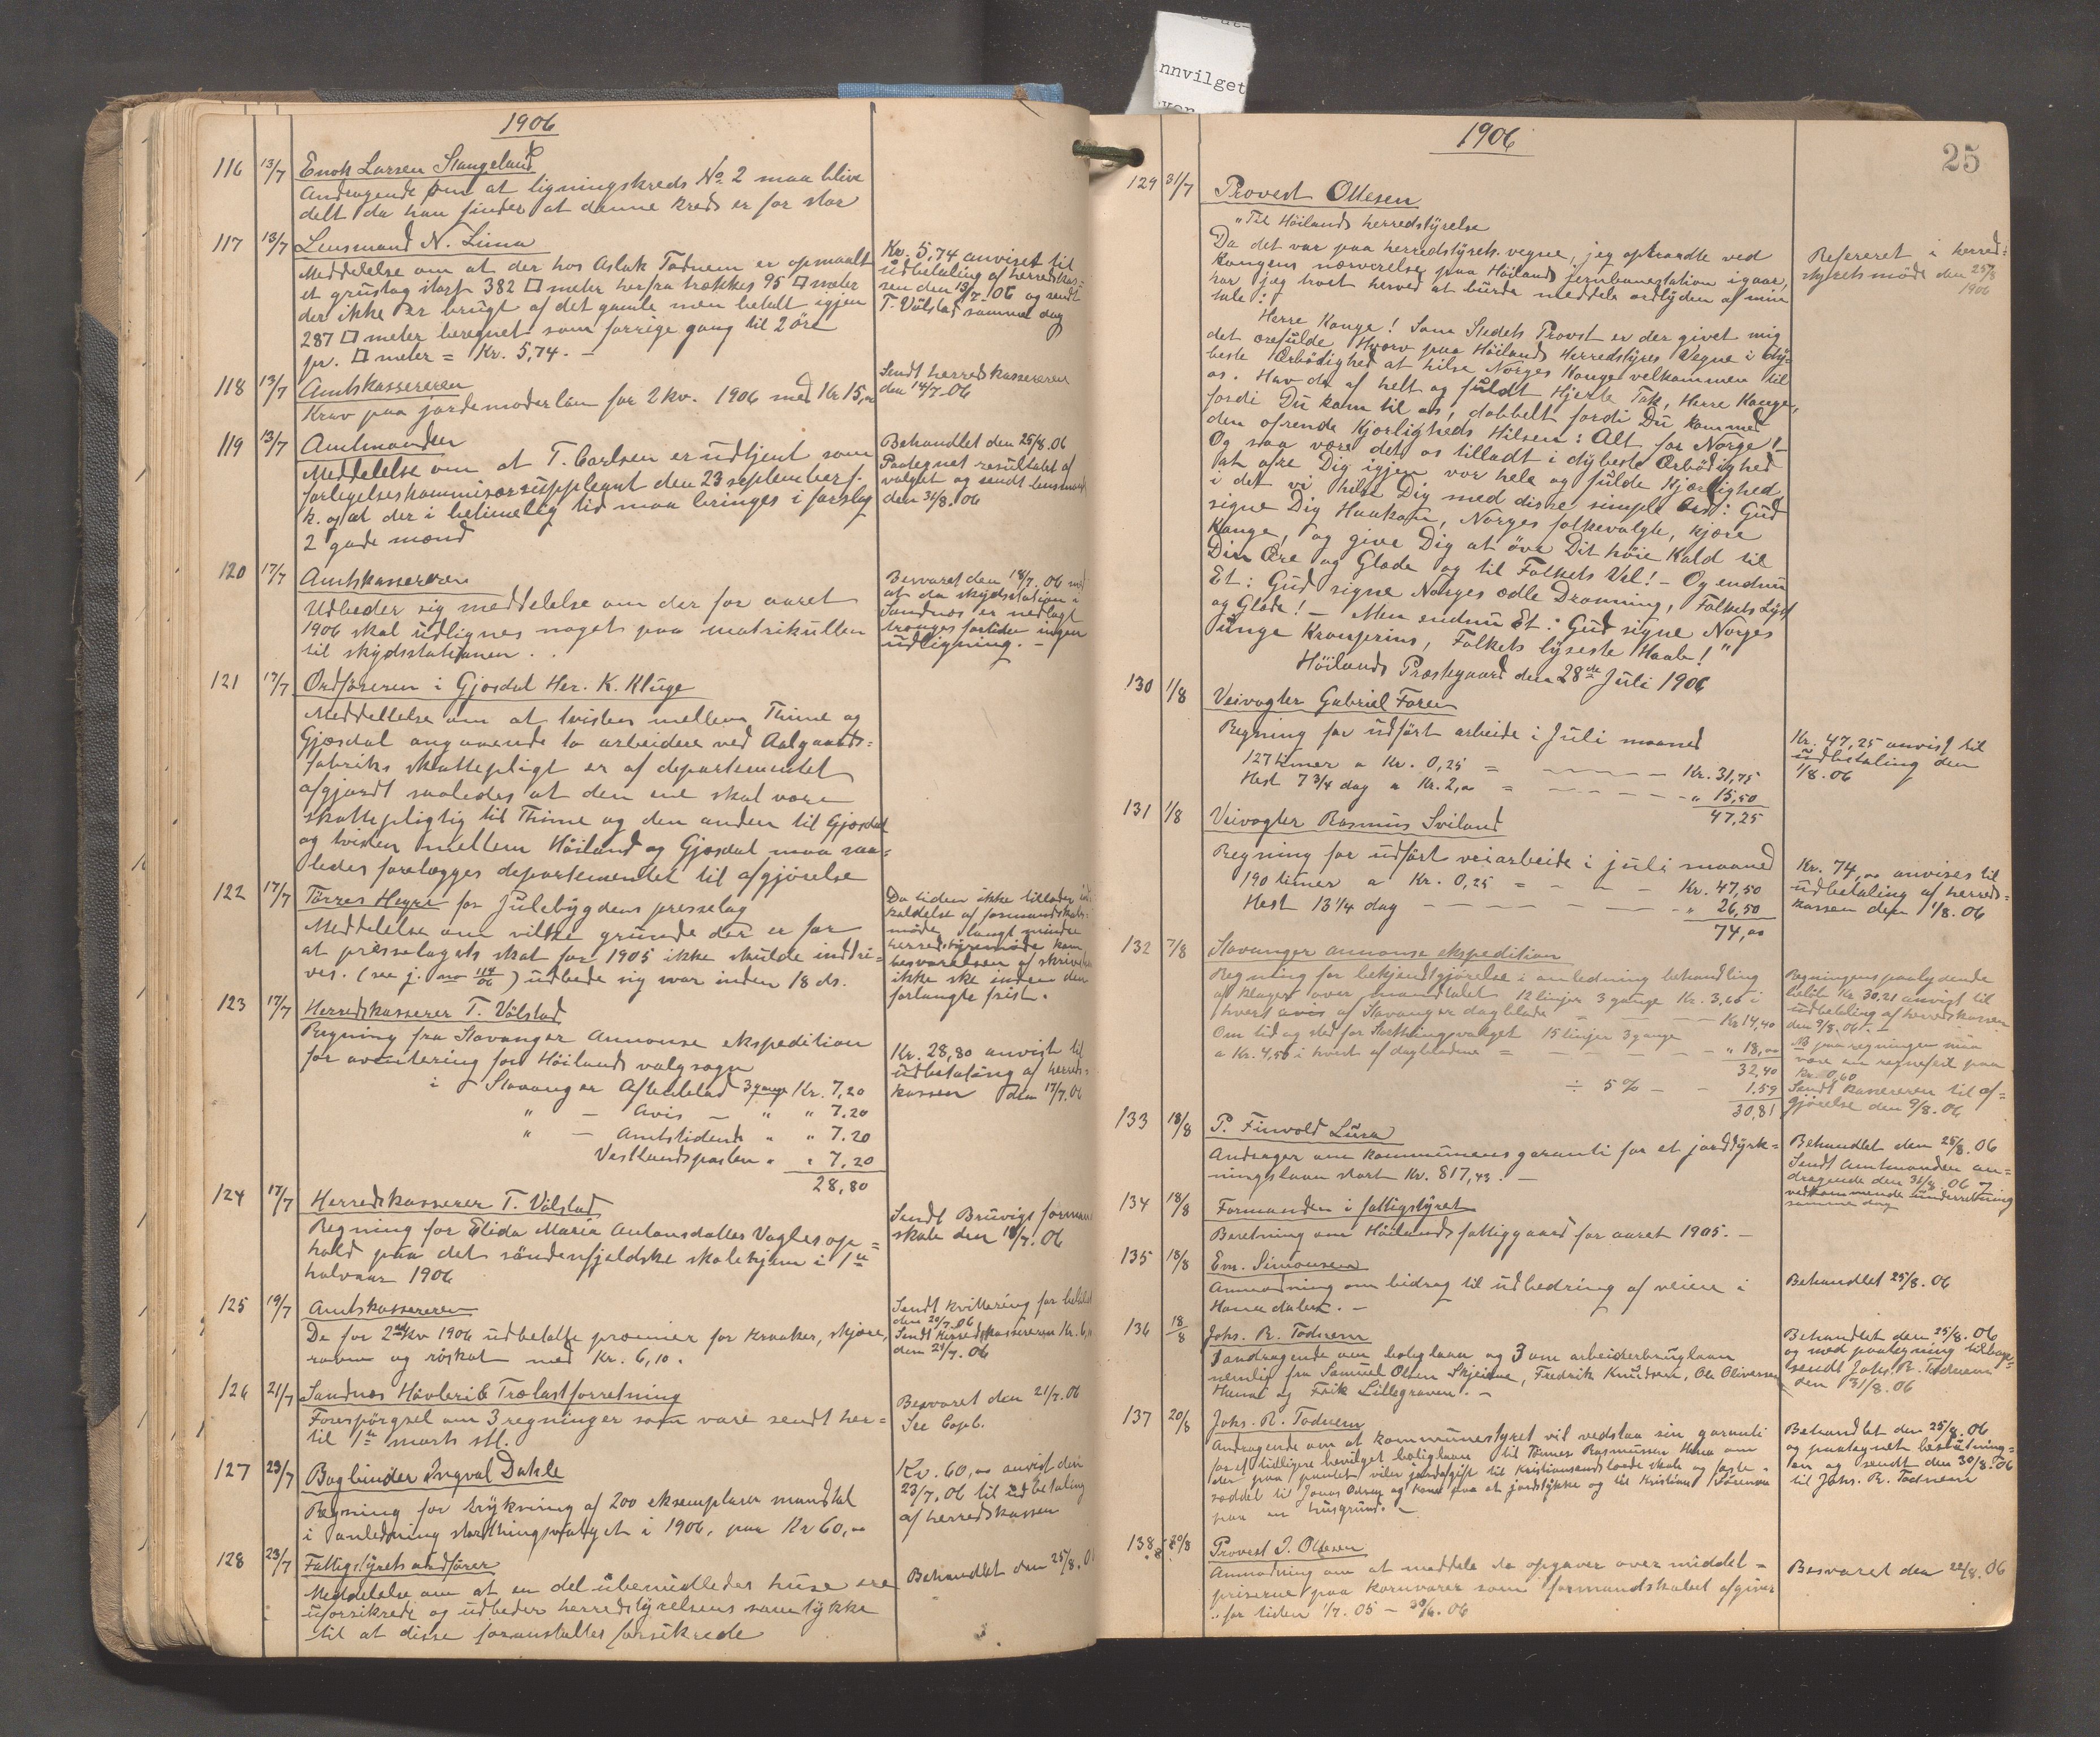 nnvilget
1906
116 13/7 Enok Larsen Stangeland
Andragende om at ligningskreds No 2 maa blive
delt da han finder at denne kreds er for stor
117 13/7 Lensmand N. Lima
Meddelelse om at der hos Aslak Todnem er opmaalt
et grustag stort 382 □ meter herfra trækkes 95 □ meter
der ikke er brugt af det gamle men betalt igjen
287 □ meter beregnet som forrige gang til 2 öre
pr. □ meter = Kr. 5,74. –
Kr. 5,74 anvist til
udbetaling af herredskas=
sen den 13/7-06 og sendt
T. Völstad samme dag
118 13/7 Amtskassereren
Krav paa jordemoderlön for 2 kv. 1906 med Kr 15,oo
Sendt herredskassereren
den 14/7.06
119 13/7 Amtmanden
Meddelelse om at T. Carlsen er udtjent som
forligelseskommisærsuppleant den 23 september f.
k. og at der i betimelig tid maa bringes i forslag
2 gode mænd
Behandlet den 25/8.06
Paategnet resultatet af
valget og sendt lensmand
den 31/8.06
120 17/7 Amtskassereren
Udbeder sig meddelelse om der for aaret
1906 skal udlignes noget paa matrikullen
til skydsstationen . .
Besvaret den 18/7.06 med
at da skydsstation i
Sandnæs er nedlagt
trænges fortiden ingen
udligning. –
121 17/7 Ordföreren i Gjæsdal Her. K. Kluge
Meddelelse om at tvisten mellem Thime og
Gjæsdal angaaende to arbeidere ved Aalgaards=
fabriks skattepligt er af departementet
afgjordt saaledes at den ene skal være
skattepligtig til Thime og den anden til Gjæsdal
og tvisten mellem Höiland og Gjæsdal maa saa=
ledes forelægges departementet til afgjörelse
122 17/7 Törres Høyre for Julebygdens presselag
Meddelelse om vilke grunde der er for
at presselagets skat for 1905 ikke skulde inddri=
ves. (see j. no 114/06) udbede sig svar inden 18 ds.
Da tiden ikke tillader ind
kaldelse af formandskabs=
møde langt mindre
herredstyremøde kan
besvarelsen af skrivelsen
ikke ske inden den
forlangte frist.
123 17/7 Herredskasserer T. Völstad
Regning fra Stavanger Annonse ekspedition
for avertering for Höilands valgsogn
i – Stavanger Aftenblad 3 gange Kr. 7,20
" – Avis – " " 7.20
" – Amtstidende " " 7.20
Vestlandsposten " " 7,20
28,80
Kr. 28,80 anvist til
udbetaling af herreds=
kassen den 17/7.06
124 17/7 Herredskasserer T. Völstad
Regning for Elida Maria Antonsdatter Vagles op=
hold paa det söndenfjeldske skolehjem i 1ste
halvaar 1906
Sendt Bruvigs formand
skab den 18/7.06
125 19/7 Amtskassereren
De for 2det kv 1906 udbetalte præmier for kraaker, skjære,
ravn og röskat med Kr. 6,10.
Sendt kvittering for beløbet
den 20/7.06
Sendt Herredskassereren Kr. 6,10
den 21/7.06
126 21/7 Sandnæs Hövleri & Trælastforretning
Forespörgsel om 3 regninger som vare sendt her=
til 1ste marts shl.
Besvaret den 21/7.06
See Copb.
127 23/7 Bogbinder Ingval Dahle
Regning for trykning af 200 eksemplarer mandtal
i anledning storthingsvalget i 1906, paa Kr 60,oo
Kr. 60,oo anvist den
23/7.06 til udbetaling
af herredskassen
128 23/7 Fattigstyrets ordförer
Meddelelse om at en del ubemidledes huse ere
uforsikrede og udbeder herredstyrelsens samtykke
til at disse foranstaltes forsikrede
Behandlet den 25/8.0
1906
25
129 31/7 Provst Ollesen
"Til Höilands herredstyrelse
Da det var paa herredstyrets vegne, jeg optraadte ved
Kongens nærværelse paa Höilands jernbanestation igaar,
har jeg troet herved at burde meddele ordlyden af min
tale: –
Herre Konge! Som Stedets Provst er der givet mig
det ærefulde Hverv paa Höilands Herredstyres Vegne i dy=
beste Ærbödighed at hilse Norges Konge velkommen til
os. Hav da af helt og fuldt Hjerte Tak, Herre Konge,
fordi Du kom til os, dobbelt fordi Du kom med
den ofrende Kjærligheds Hilsen: Alt for Norge! –
Og saa være det os tilladt i dybeste Ærbödighed
at ofre Dig igjen vor hele og fulde Kjærlighed
i det vi hilse Dig med disse simple Ord: Gud
signe Dig Haakon, Norges folkevalgte, kjære
Konge, og give Dig at öve Dit höie Kald til
Din Ære og Glæde og til Folkets Vel! – Og endnu
Et: Gud signe Norges ædle Dronning, Folkets Lyst
og Glæde! – Men endnu Et: Gud signe Norges
unge Kronprins, Folkets lyseste Haab!"
Höilands Præstegaard den 28de Juli 1906
Refereret i herred=
styretsmöde den 25/8
1906
130 1/8 Veivogter Gabriel Foren
Regning for udfört arbeide i Juli maaned
127 timer a Kr. 0,25 = – – – – Kr. 31,75
Hest 7 3/4 dag a Kr. 2,oo = – – – – – " 15,50
47,25
Kr. 47,25 anvist til
udbetaling den
1/8.06
131 1/8 Veivogter Rasmus Sviland
Regning for udfört veiarbeide i juli maaned
190 timer a Kr. 0,25 = – – – Kr. 47,50
Hest 13 1/4 dag – – – – – – – " 26,50
74,oo
Kr. 74,oo anvises til
udbetaling af herreds=
kassen den 1/8.06
132 7/8 Stavanger annonse ekspedition
Regning for bekjendtgjörelse i anledning behandling
af klager over mandtalet 12 linjer 3 gange Kr. 3,60 i
hvert avis af Stavanger dagblade = – – – Kr 14,40
Om tid og sted for Storthingsvalget 15 linjer 3 gange
a Kr. 4,50 i hvert af dagbladene = – – – – " 18,oo
32,40
÷ 5% – – 1.59
30,81
Regningens paalydende
beløb Kr. 30,21 anvist til
udbetaling af herredskassen
den 9/8.06. –
NB paa regningen maa
være en regnefeil paa
Kr. 0,60
Sendt kassereren til af=
gjörelse den 9/8.06
133 18/8 P. Finvold Lura
Andrager om kommunens garanti for et jorddyrk=
ningslaan stort Kr. 817,43. –
Behandlet den 25/8.06
Sendt amtmanden an=
dragende den 31/8.06 og
vedkommende underretning
samme dag
134 18/8 Formanden i fattigstyret
Beretning om Höilands fattiggaard for aaret 1905. –
135 18/8 Em. Simonsen
Anmodning om bidrag til udbedring af veien i
Hanedalen. –
Behandlet 25/8.06
136 18/8 Johs. R. Todnem
1 andragende om boliglaan og 3 om arbeiderbruglaan
nemlig fra Samuel Olsen Skjeine, Fredrik Knudsen, Ole Oliversen
Hana og Eirik Lillegraven. –
Behandlet den 25/8.06
og med paategning tilbage=
sendt Johs. R. Todnem
den 31/8.06
137 20/8 Johs. R. Todnem
Andragende om at kommunestyret vil vedstaa sin garanti
for et tidligere bevilget boliglaan til Tönnes Rasmussen Hana om
der paa pantet viler jordafgift til Kristiansands lærde skole og fæste=
seddel til Jonas og Kone paa et jordstykke og til Kristian
paa en husgrund. –
Behandlet den 25/8.06
og paategnet beslutning=
en og sendt den 30/8.06
til Johs. R. Todnem
138 20/8 Provst J. Ollesen
Anmodning om at meddele de opgaver over middel=
priserne paa kornvarer som formandskabet afgiver
for tiden 1/7.05 – 30/6.06
Besvaret den 22/8.06